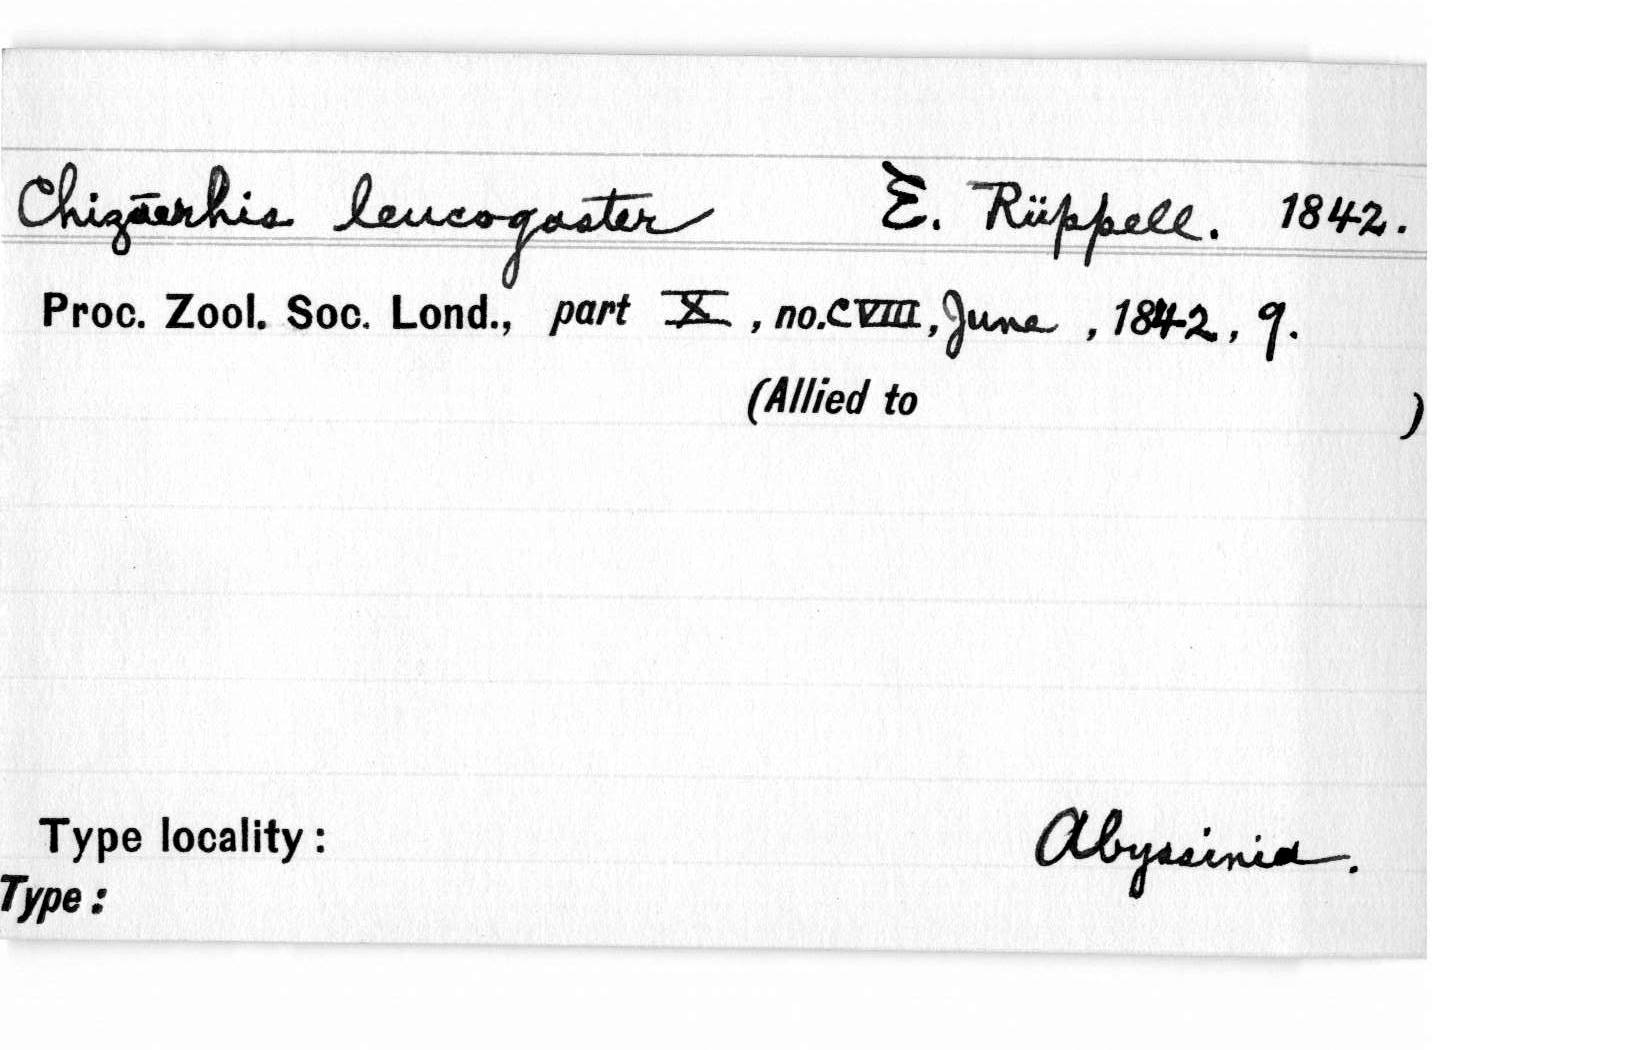 Chizaerhis leucogaster E. Rüppell. 1842.
Proc. Zool. Soc. Lond., part X, no. CVIII, June, 1842, 9.
(Allied to )
Type locality: Abyssinia.
Type: